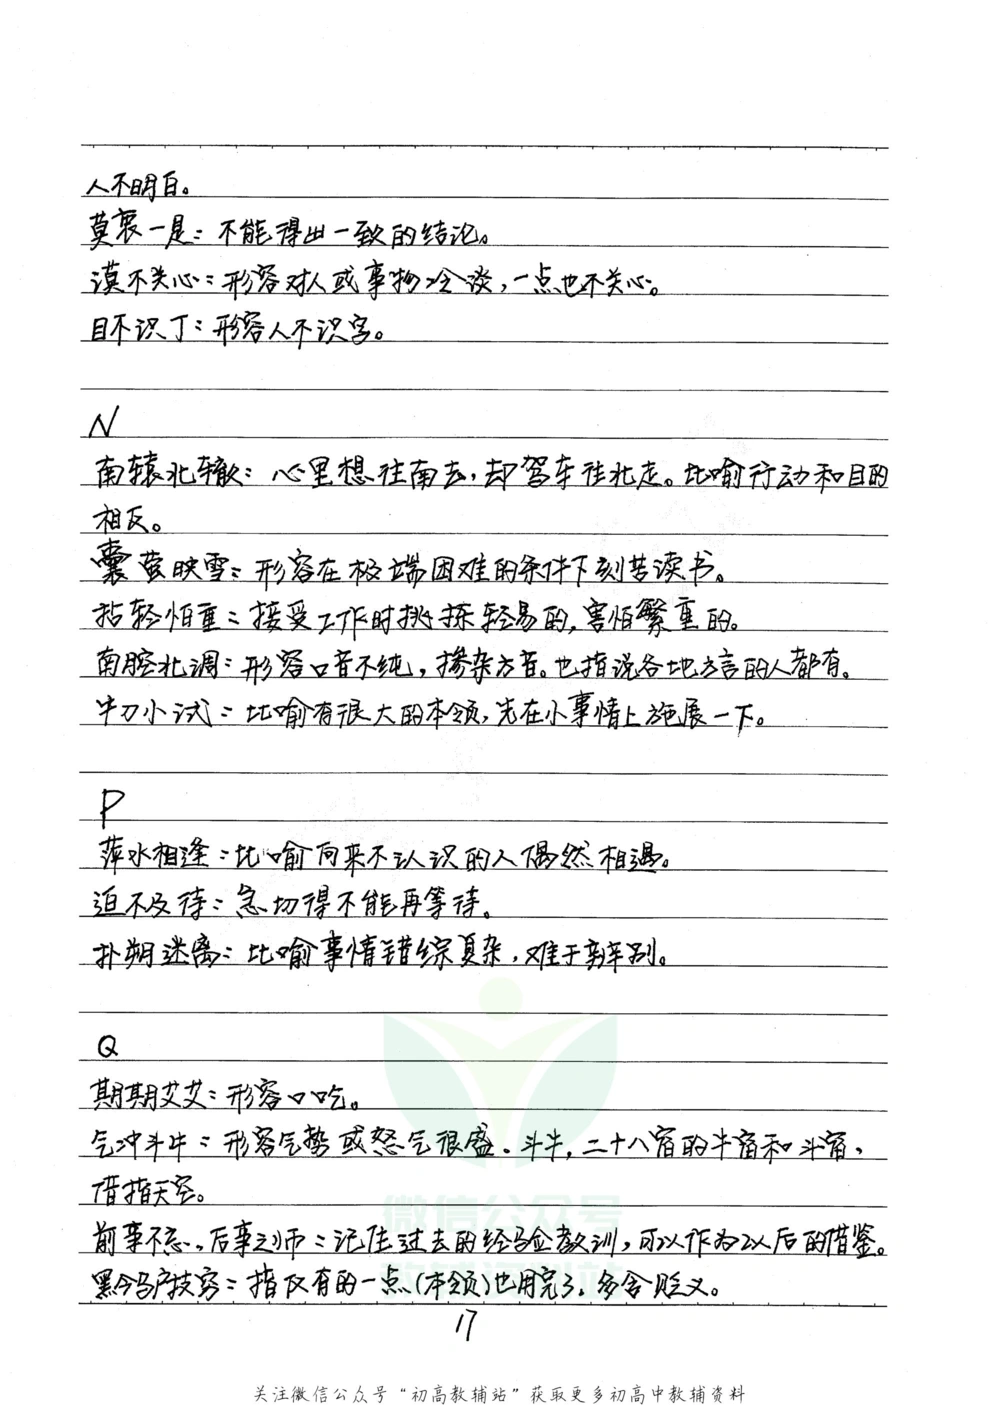 人不明白。
莫衷一是：不能得出一致的结论。
漠不关心：形容对人或事物冷淡，一点也不关心。
目不识丁：形容人不识字。
N
南辕北辙：心里想往南去，却驾车往北走。比喻行动和目的
相反。
囊萤映雪：形容在极端困难的条件下刻苦读书。
拈轻怕重：接受工作时挑拣轻易的，害怕繁重的。
南腔北调：形容口音不纯，掺杂方音。也指说各地方言的人都有。
牛刀小试：比喻有很大的本领，先在小事情上施展一下。
P
萍水相逢：比喻向来不认识的人偶然相遇。
迫不及待：急切得不能再等待。
扑朔迷离：比喻事情错综复杂，难于辨别。
Q
期期艾艾：形容口吃。
气冲斗牛：形容气势或怒气很盛。斗牛，二十八宿的牛宿和斗宿，
借指天空。
前事不忘，后事之师：记住过去的经验教训，可以作为以后的借鉴。
黔驴技穷：指仅有的一点（本领）也用完了。多含贬义。
17
微信公众号
教辅资料站
关注微信公众号“初高教辅站”获取更多初高中教辅资料